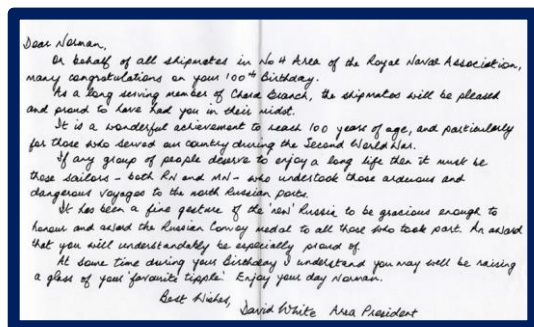 Dear Norman,
On behalf of all shipmates in No 4 Area of the Royal Naval Association,
many congratulations on your 100th Birthday.
As a long serving member of Chard Branch, the shipmates will be pleased
and proud to have had you in their midst.
It is a wonderful achievement to reach 100 years of age, and particularly
for those who served our country during the Second World War.
If any group of people deserve to enjoy a long life then it must be
those sailors - both RN and MN - who undertook those arduous and
dangerous voyages to the north Russian ports.
It has been a fine gesture of the 'new' Russia to be gracious enough to
honour and award the Russian Convoy medal to all those who took part. An award
that you will understandably be especially proud of.
At some time during your Birthday I understand you may well be raising
a glass of your 'favourite tipple'. Enjoy your day Norman.
Best Wishes,
David White Area President